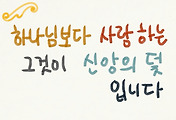 하나님보다 사람 하는
그것이 신앙의 덫
입니다